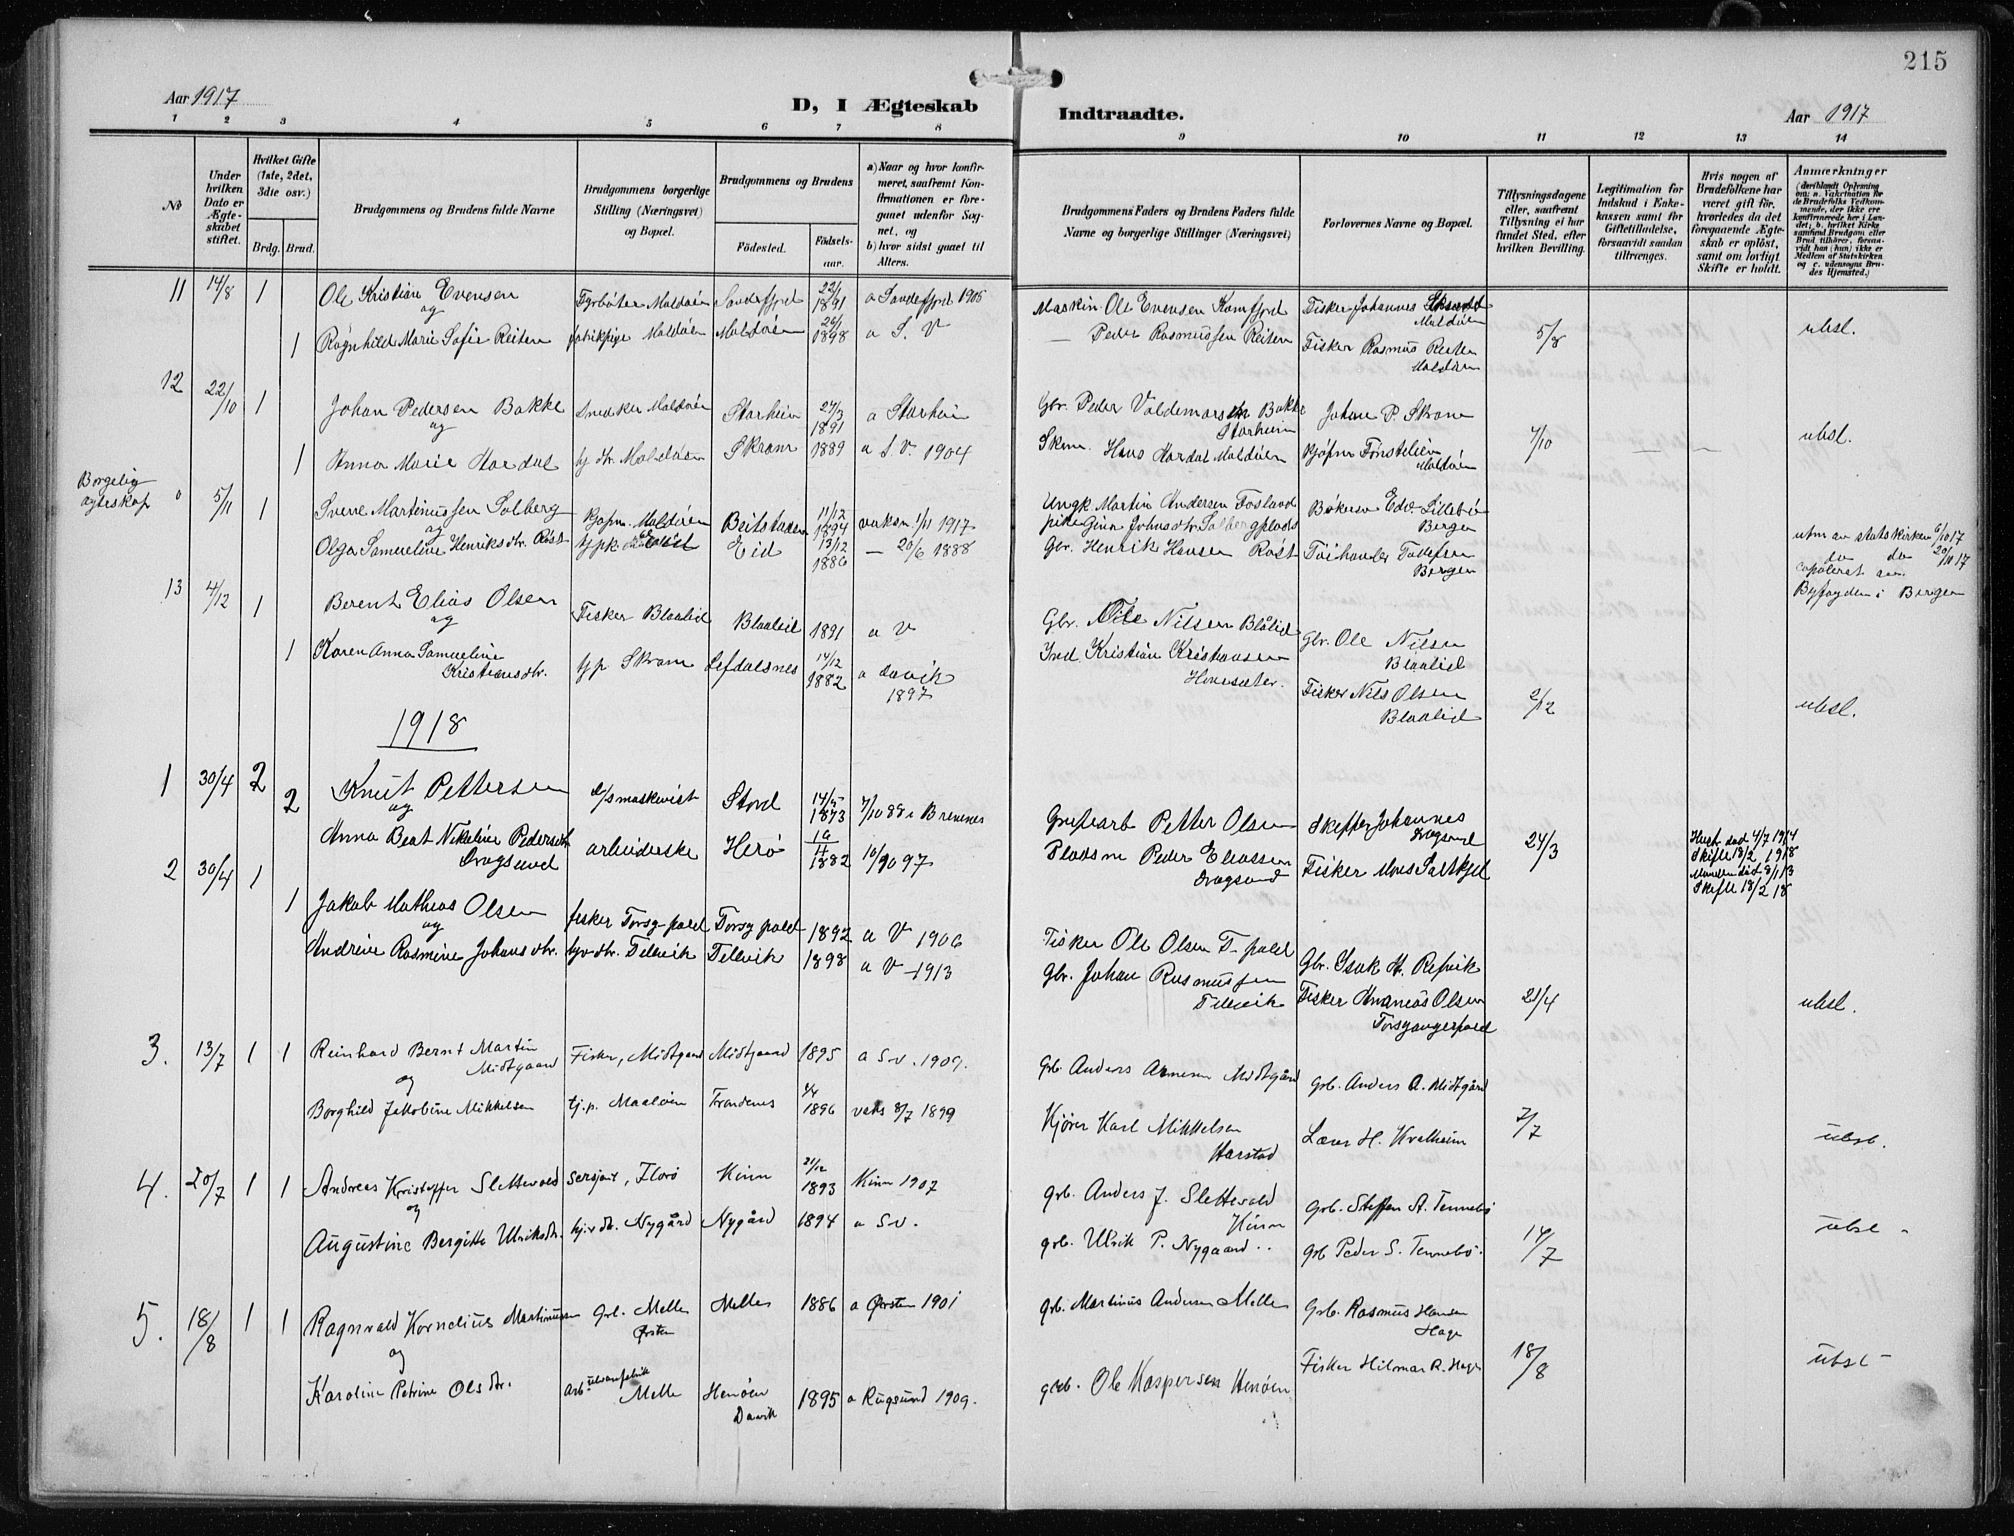 215
Aar 1917
D, I Ægteskab Indtraadte.
Aar 1917
1 2 3 4 5 6 7 8 9 10 11 12 13 14
No
Under hvilken Dato er Ægteskabet stiftet.
Hvilket Gifte (1ste, 2det, 3die osv.)
Brdg. Brud.
Brudgommens og Brudens fulde Navne
Brudgommens borgerlige Stilling (Næringsvei) og Bopæl.
Brudgommens og Brudens
Födested. Födsels-aar.
a) Naar og hvor konfirmeret, saafremt Konfirmationen er foregaaet udenfor Sognet, og
b) hvor sidst gaaet til Alters.
Brudgommens Faders og Brudens Faders fulde Navne og borgerlige Stillinger (Næringsvei)
Forlovernes Navne og Bopæl.
Tillysningsdagene eller, saafremt Tillysning ei har fundet Sted, efter hvilken Bevilling.
Legitimation for Indskud i Enkekassen samt for Giftetilladelse, forsaavidt saadan tiltrænges.
Hvis nogen af Brudefolkene har været gift för, hvorledes da det foregaaende Ægteskab er oplöst, samt om lovligt Skifte er holdt.
Anmærkninger
11 14/8 1 Ole Kristian Evensen Fyrbøter Maldøen Sandefjord 22/1 1891 a Sandefjord 1906 Maskin. Ole Evensen Fisker Johannes
og Maldøen
1 Ragnhild Marie Sofie Reiten fabrikpige Maldøen Maldøen 1898 a S. V Peder Rasmussen Reiten Fisker Rasmus Reiten 5/8 ubsl.
Maldøen
12 22/10 1 Johan Pedersen Bakke Snedker Maldøen Starheim 27/3 1891 a Starheim Gbr. Peder Valdemarsen Bakke Johan P. Skram
og Starheim
1 Anna Marie Hardal Maldøen Skram 1889 a S. V. 1904 Hans Hardal Maldøen Kjøpm 7/10 — — ubsl.
Maldøen
Borgelig
ægteskap 5/11 1 Sverre Martinussen Solberg Kjøpm. Maldøen Beitstaden 11/12 1894 vaksn. 1/11 1917 Ungk Martin Andersen Fosland Edv. Lillebø
og pike Gina Johnsdtr. Bergen
Olga Samueline Henriksdtr. Røst Eid 13/12 1886 — 20/6 1888 Gbr. Henrik Hansen Røst Bergen
utm av statskirken 6/10 17
do do 20/10 17
Byfogden i Bergen
13 4/12 1 Berent Elias Olsen Fisker Blaalid Blaalid 1891 a V Gbr. Ole Nilsen Blålid Gbr. Ole Nilsen
og Blaalid
1 Karen Anna Samueline tjp Skram Lefdalsnes 14/12 1882 a Davik Ind. Kristian Kristiansen Fisker Nils Olsen 2/12 ubsl.
Kristiansdtr. 1897 Blaalid
1918
1 30/4 2 Knut Pettersen Stord 14/5 1873 7/10 88 i Bremnes Petter Olsen Skipper Johannes
og Dragsund
2 Anna Beat Nikoline Pedersdtr arbeiderske Herø 1882 10/10 97 Pladsm Peder Eliassen Fisker 24/3
Dragsund Dragsund
Hust død 4/7 1914
Skifte 18/2 1918
Manden død 8/1 13
Skifte 18/2 18
2 30/4 1 Jakob Mathias Olsen fisker Torsg pold Torsg pold 1892 a V 1906 Fisker Ole Olsen T- pold Gbr. Isak H. Refvik
og
1 Andrine Rasmine Johansdtr. Tellevik Tellevik 1898 a V —1913 Gbr. Johan Rasmussen Fisker Ananias Olsen 21/4 ubsl.
Tellevik Torsgangerpold
3. 13/7 1 1 Reinhard Bernt Martin Fisker, Midtgaard Midtgaard 1895 a S.v. 1909. Grb. Anders Midtgård Grb. Anders A. Midtgård
Midtgaard
og
Borghild Jakobine Mikkelsen tj.p. Maaløen Trondenes 1896 vaks 8/7 1899 Kjører Karl Mikkelsen Lærer H. Kvalheim 7/7 ubsl.
Harstad
4. 20/7 1 1 Andreas Kristoffer Slettevold Sersjant, Florø Kinn 21/12 1893 Kinn 1907 grb. Anders J. Slettevold Grb. Steffen A. Tennebø
og Kinn
Augustine Bergitte Ulriksdtr. hj.v. dtr. Nygård Nygård 1894 a S.v. grb. Ulrik P. Nygaard grb Peder S. Tennebø. 14/7 ubsl
5. 18/8 1 1 Ragnvald Kornelius Martinussen Grb. Melle Melle 1886 a Ørsten 1901 grb. Martinus Andersen Melle Grb. Rasmus Hansen
og Ørsten Hage
Karoline Petrine Olsdtr. Arb. uldvarefabrik Melle Henøen Davik 1895 a Rugsund 1909. grb. Ole Kaspersen Henøen Fisker Hilmar R. Hage 18/8 ubsl